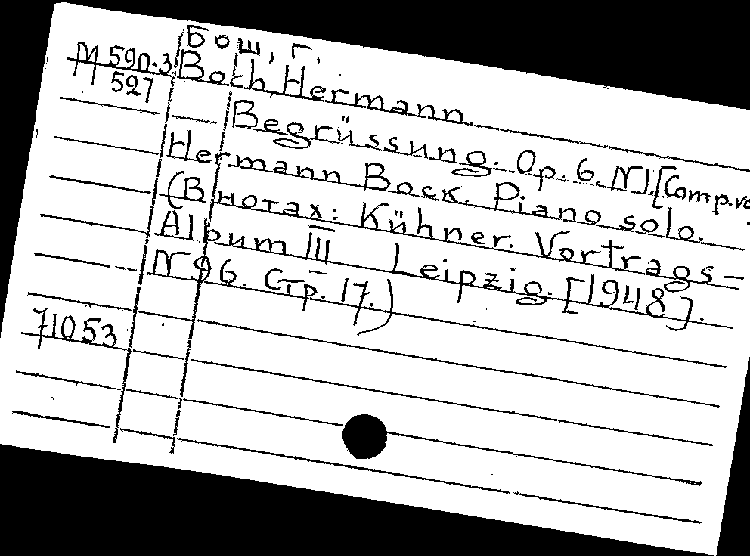 Бош, Г.
М 590.3 Boch Hermann.
527
Begrüssung. Op. 6. N1. [Comp. von
Hermann Bock. Piano solo.
(В нотах: Kühner. Vortrags-
Album III Leipzig. [1948].
N 96. Стр. 17.)
71053